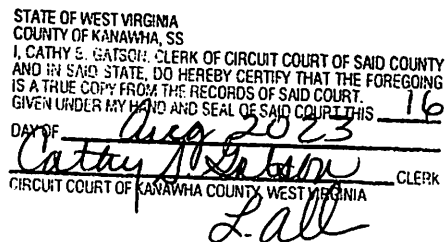 STATE OF WEST VIRGINIA
COUNTY OF KANAWHA, SS
I, CATHY S. GATSON, CLERK OF CIRCUIT COURT OF SAID COUNTY
AND IN SAID STATE, DO HEREBY CERTIFY THAT THE FOREGOING
IS A TRUE COPY FROM THE RECORDS OF SAID COURT.
GIVEN UNDER MY HAND AND SEAL OF SAID COURT THIS 16
DAY OF Aug 2023
Cathy S. Gatson CLERK
CIRCUIT COURT OF KANAWHA COUNTY, WEST VIRGINIA